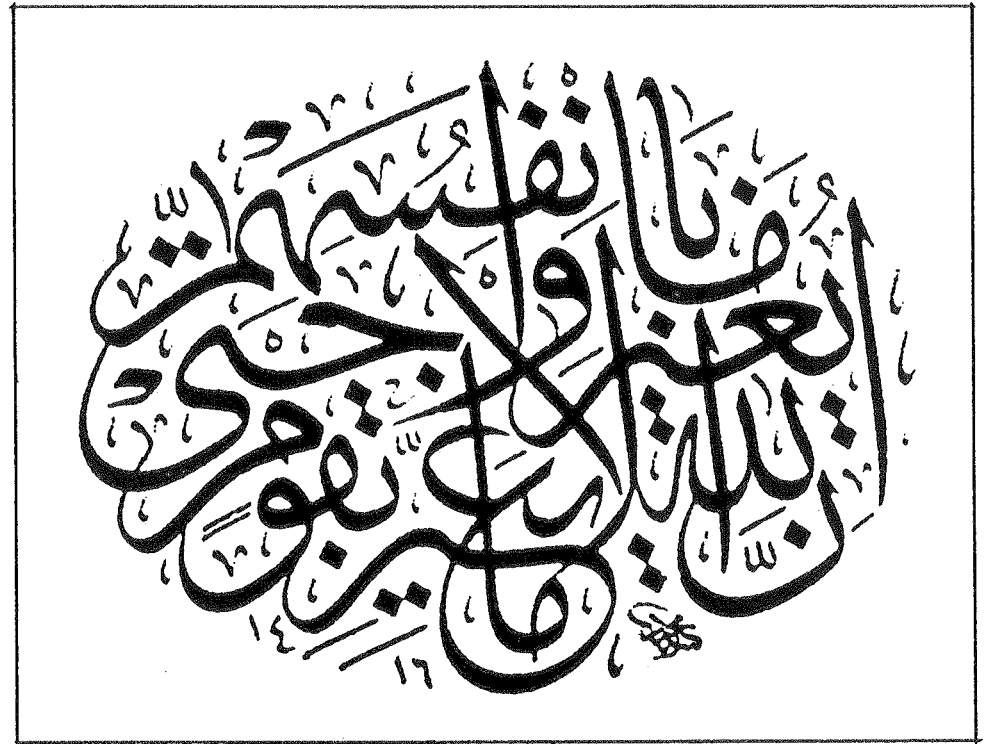 إِنَّ اللَّهَ لَا يُغَيِّرُ مَا بِقَوْمٍ حَتَّى يُغَيِّرُوا مَا بِأَنْفُسِهِمْ
١٤١٦